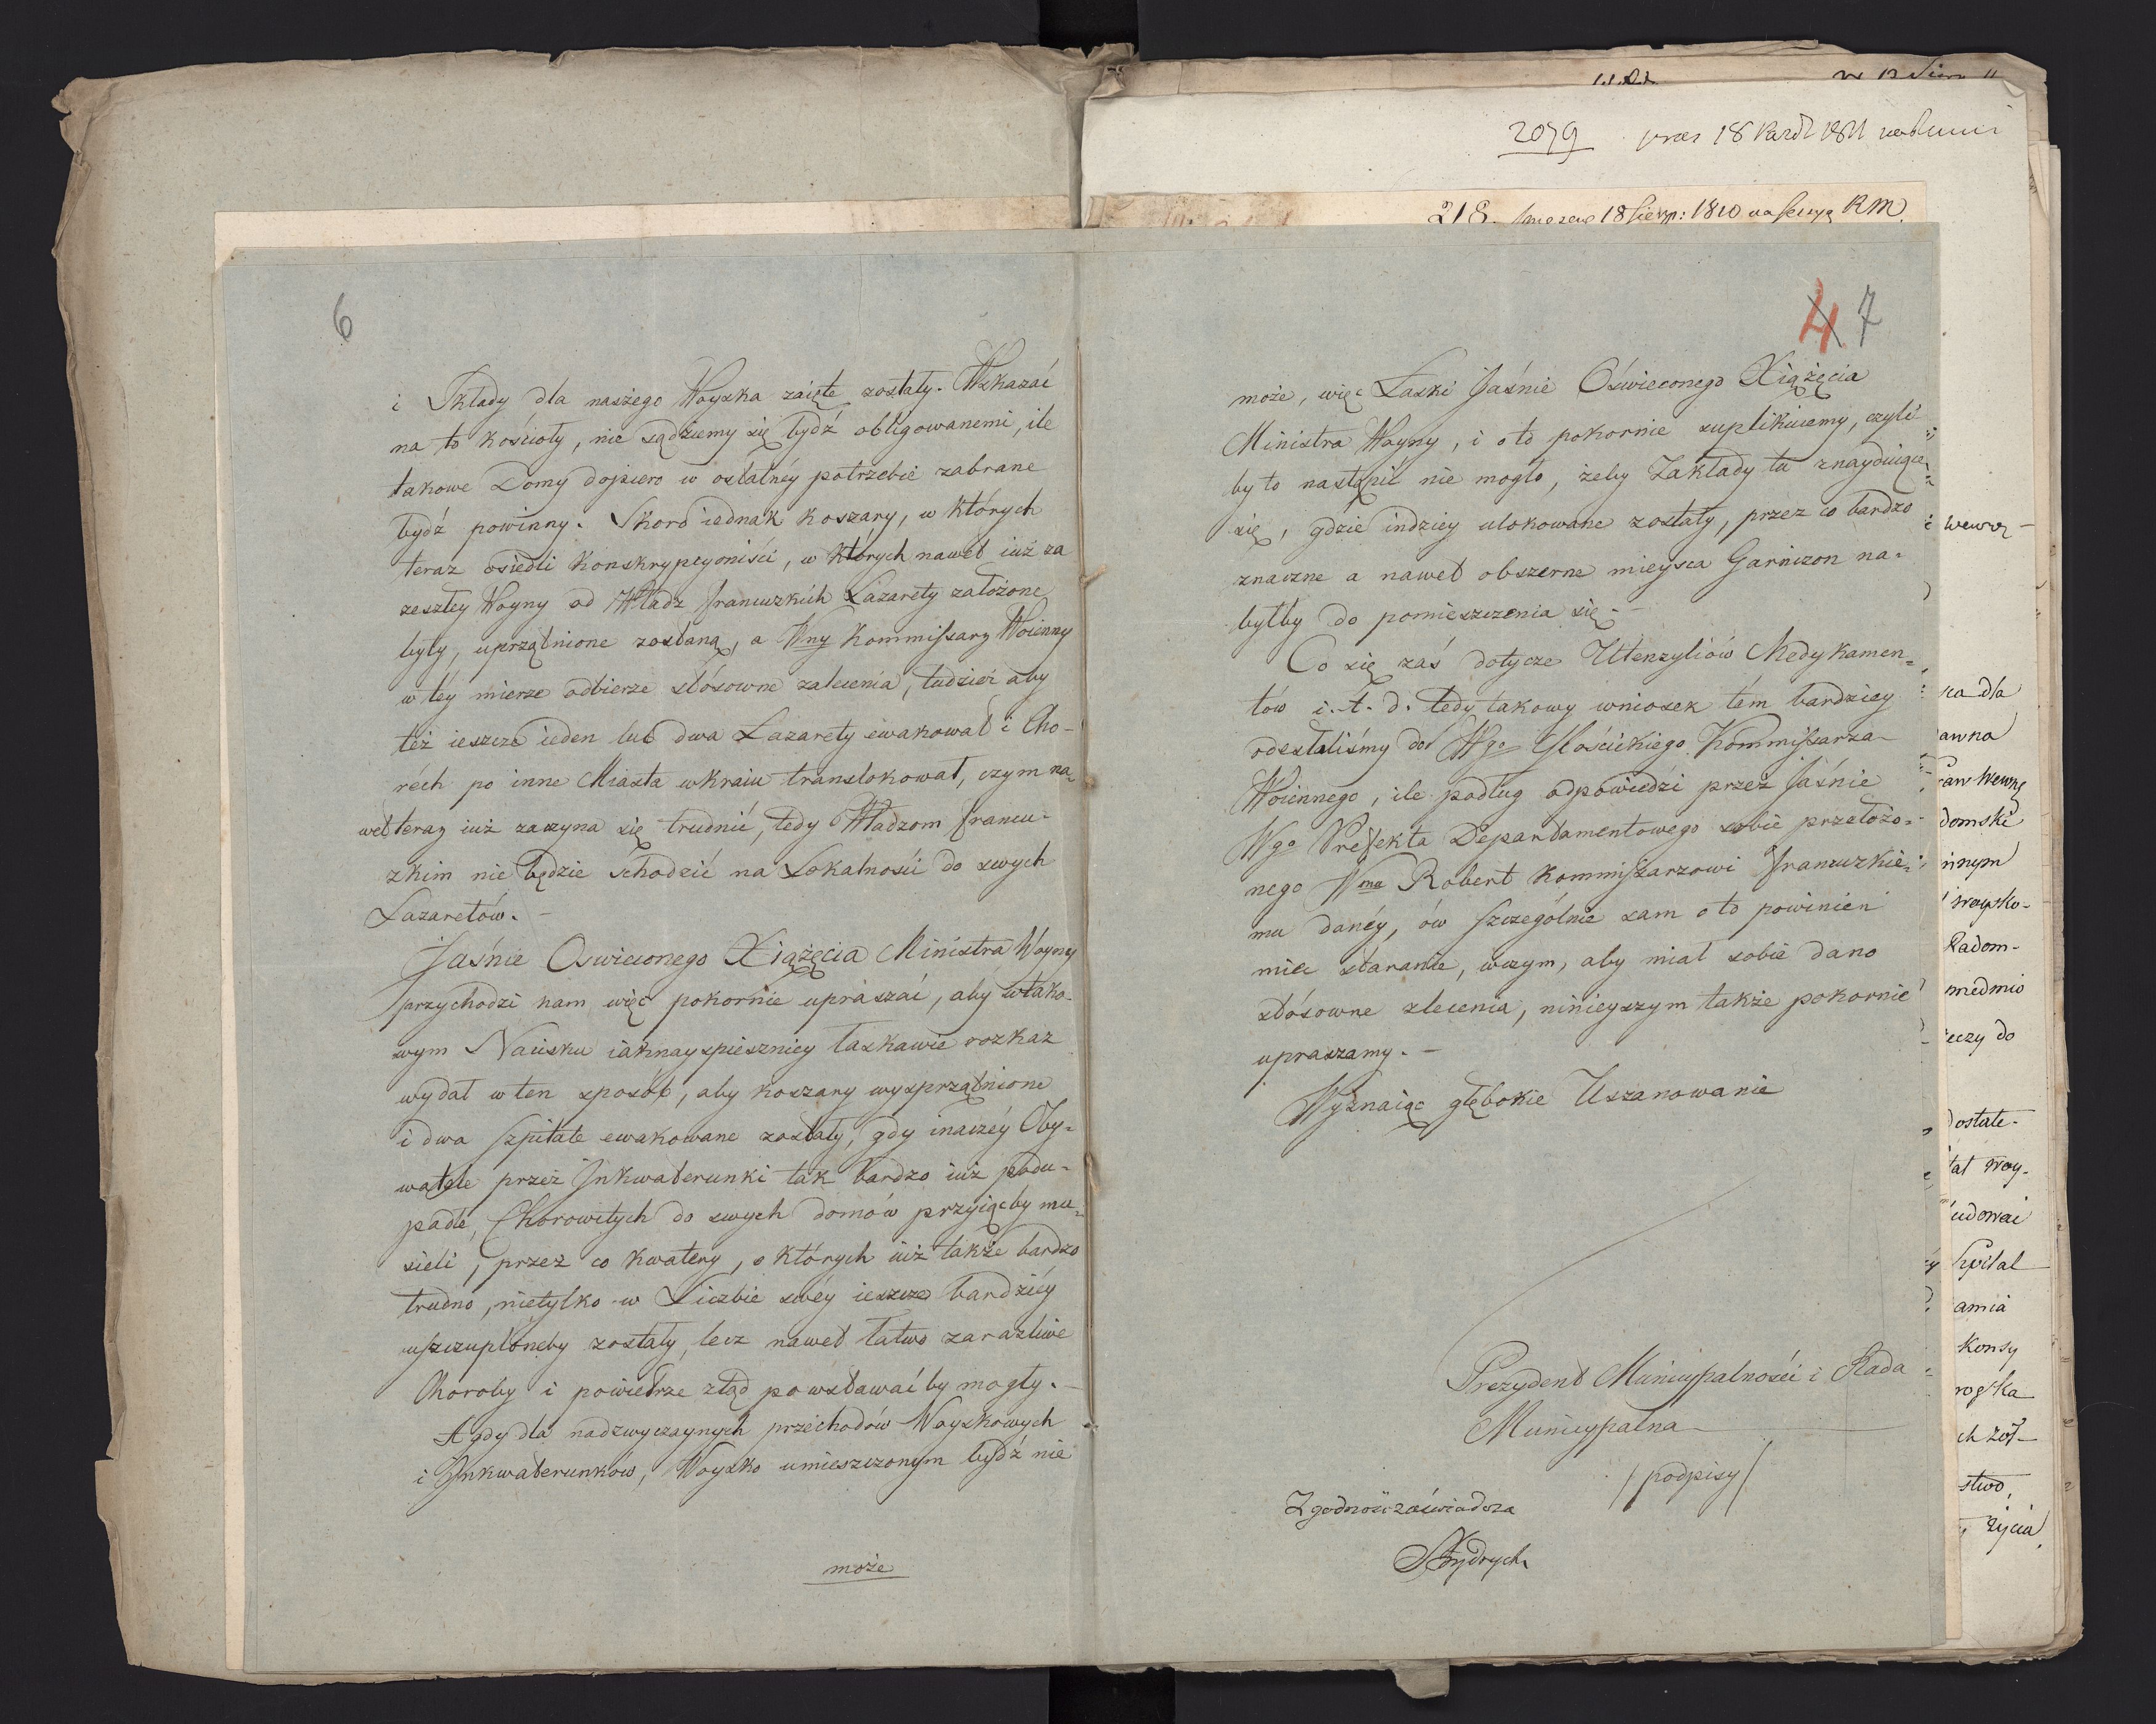 6
i Składy dla naszego Woyska zaięte zostały. Wskazać
na to kościoły, nie sądziemy się bydź obligowanemi, ile
takowe Domy dopiero w ostatnéy potrzebie zabrane
bydź powinny. Skoro iednak koszary, w których
teraz osiedli Konskrypcyoniści, w których nawet iuż za
zeszłey Woyny od Władz francuzkich Lazarety założone
były, uprzątnione zostaną, a Wny Kommissarz Woienny
w téy mierze odbierze stósowne zalecenia, tudzież aby
też ieszcze ieden lub dwa Lazarety ewakował i Cho-
rych po inne Miasta w kraiu translokował, czym na-
wet teraz iuż zaczyna się trudnić, tedy Władzom francu-
zkim nie będzie schodzić na Lokalności do swych
Lazaretów. -
Jaśnie Oswieconego Xiążęcia Ministra Woyny
przychodzi nam więc pokornie upraszać, aby w tako-
wym Nacisku iaknayspieszniey łaskawie rozkaz
wydał w ten sposób, aby koszary wysprzątnione
i dwa Szpitale ewakowane zostały, gdy inaczéy Oby-
watele przez Inkwaterunki tak bardzo iuż podu-
padłe, Chorowitych do swych domów przyiąćby mu-
sieli, przez co kwatery, o których iuż także bardzo
trudno, nietylko w Liczbie swéy ieszcze bardziéy
uszczuploneby zostały, lecz nawet łatwo zaraźliwe
Choroby i powietrze ztąd powstawać by mogły. -
A gdy dla nadzwyczaynych przechodów Woyskowych
i Inkwaterunkow, Woysko umieszczonym bydź nie
może
2079
18 1811
218. 18 Sierp: 1810 na Sessyą RM.
4 7
może, więc Łaski Jaśnie Oświeconego Xiążęcia
Ministra Woyny, i o to pokornie suplikuiemy, czyli-
by to nastąpić nie mogło, żeby Zakłady tu znayduiące
się, gdzie indziey ulokowane zostały, przez co bardzo
znaczne a nawet obszerne mieysca Garnizon na-
byłby do pomieszczenia się. -
Co się zaś dotycze Utensyliów Medykamen-
tów i. t. d. tedy takowy wniosek tém bardziey
odesłaliśmy do Wgo Kommissarza
Woiennego, ile podług odpowiedzi przez Jaśnie
Wgo Prefekta Departamentowego sobie przełożo-
nego Wmu Robert Kommissarzowi francuzkie-
mu danéy, ów szczególnie sam o to powinien
mieć staranie, w czym, aby miał sobie dano
stósowne zlecenia, ninieyszym także pokornie
upraszamy. -
Wyznaiąc głębokie Uszanowanie
Prezydent Municypalności i Rada
Municypalna
/podpisy/
Zgodność zaświadcza
ka dla
awna
domski
nnym
woysko-
Radom-
eczy do
dostate-
Szpital
amia
konsy
stwo,
życia